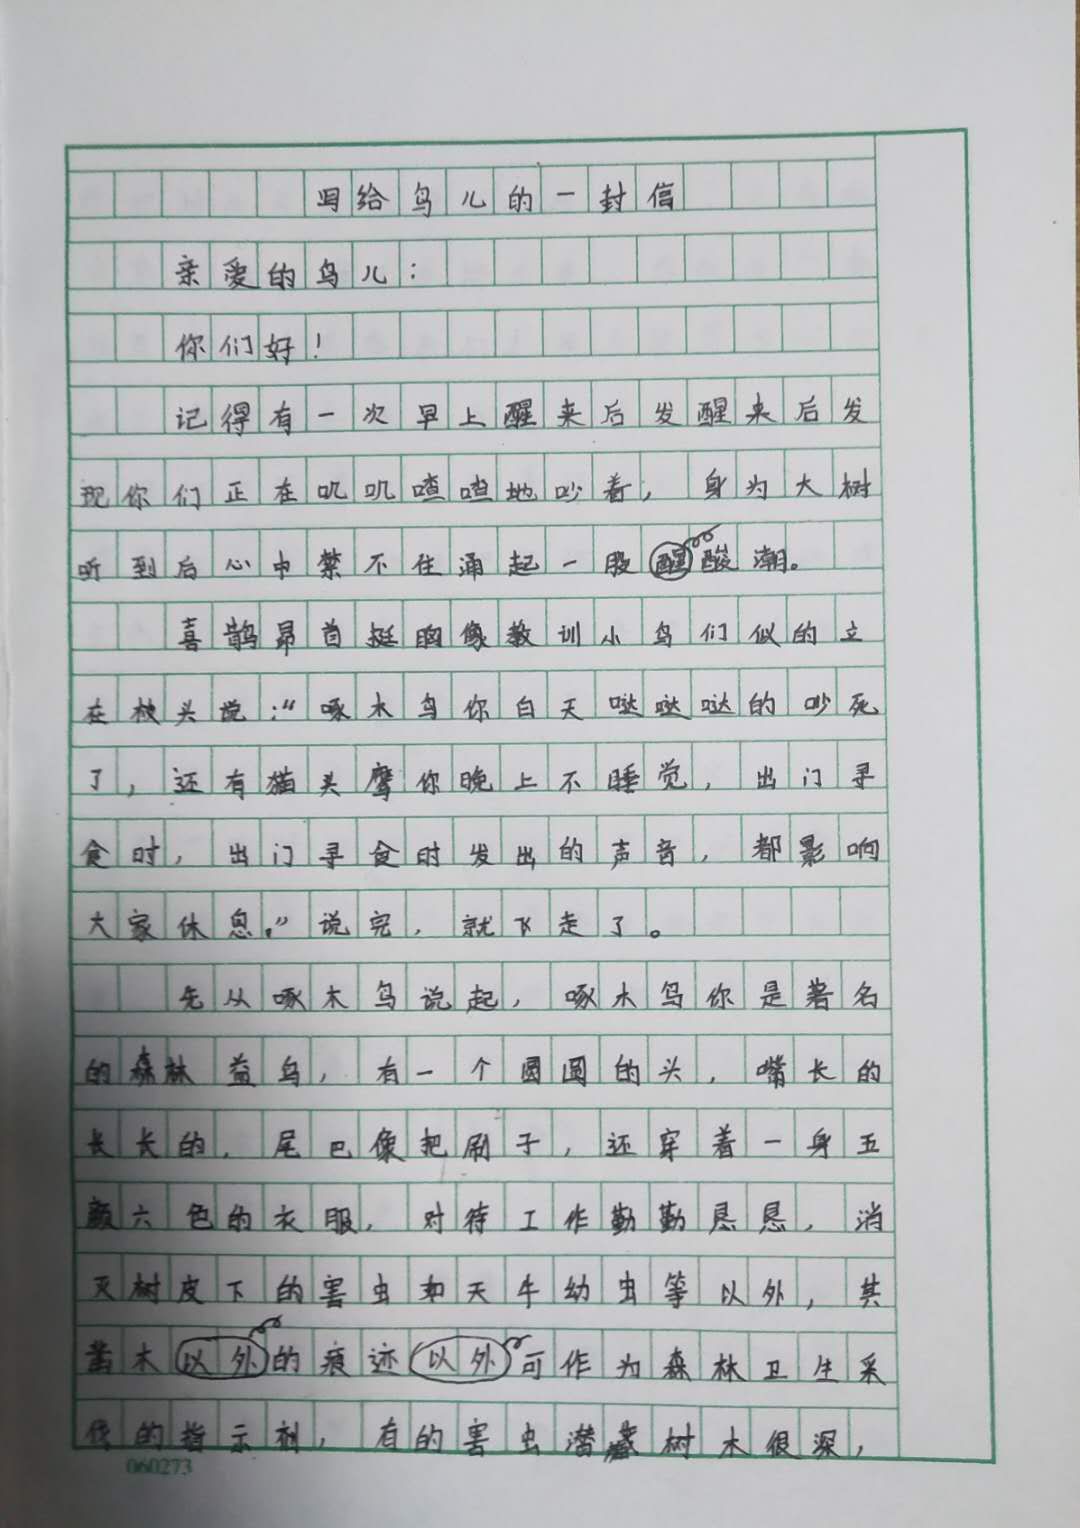 写给鸟儿的一封信
亲爱的鸟儿：
你们好！
记得有一次早上醒来后发醒来后发
现你们正在叽叽喳喳地吵着，身为大树
听到后心中禁不住涌起一股醒酸潮。
喜鹊昂首挺胸像教训小鸟们似的立
在枝头说：“啄木鸟你白天哒哒哒的吵死
了，还有猫头鹰你晚上不睡觉，出门寻
食时，出门寻食时发出的声音，都影响
大家休息。”说完，就飞走了。
先从啄木鸟说起，啄木鸟你是著名
的森林益鸟，有一个圆圆的头，嘴长的
长长的，尾巴像把刷子，还穿着一身五
颜六色的衣服，对待工作勤勤恳恳，消
灭树皮下的害虫如天牛幼虫等以外，其
凿木以外的痕迹以外可作为森林卫生采
伐的指示剂，有的害虫潜藏树木很深，
060273